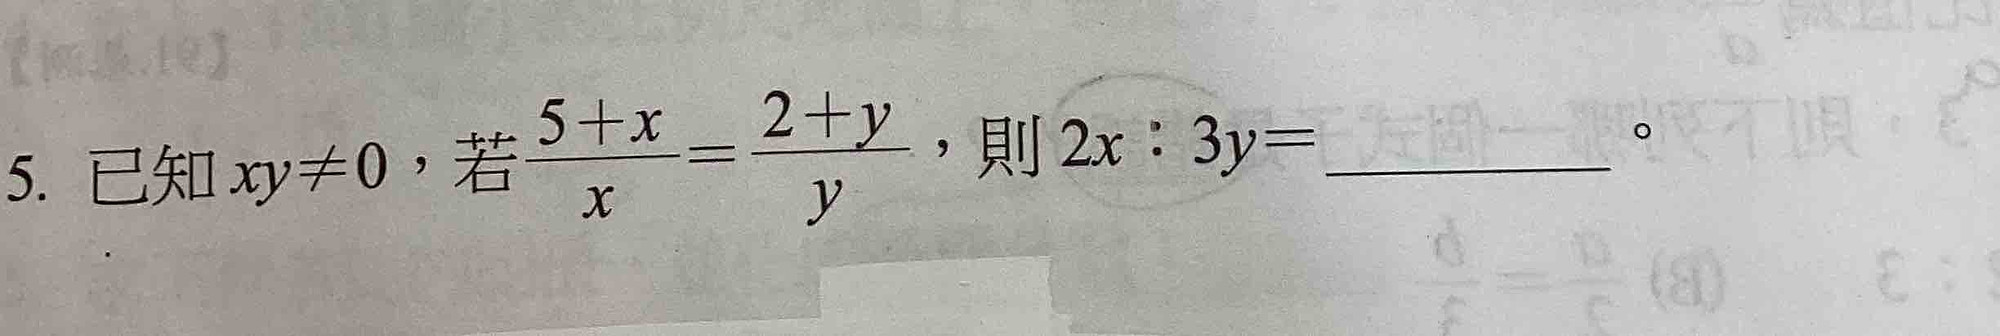 5. 已知 xy≠0,若 \frac{5+x}{x}=\frac{2+y}{y},則 2x:3y=______。